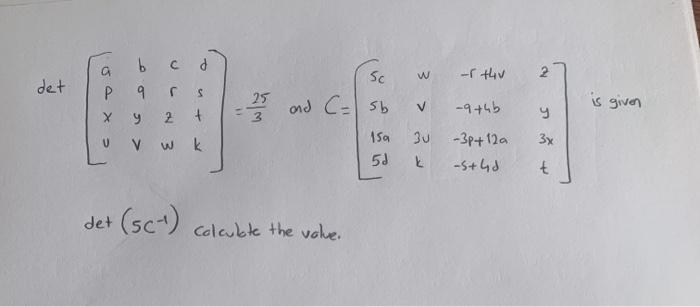 det [a b c d; p q r s; x y z t; u v w k] = 25/3 and C= [5c w -r+4v z; 5b v -q+4b y; 15a 3u -3p+12a 3x; 5d k -s+4d t] is given
det (5C⁻¹) calculate the value.